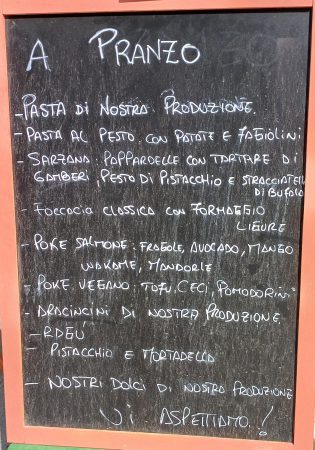 A PRANZO
- PASTA di NOSTRA PRODUZIONE.
- PASTA AL PESTO CON PATATE E FAGIOLINI
- SARZANA: PAPPARDELLE CON TARTARE DI
GAMBERI, PESTO DI PISTACCHIO E STRACCIATELLA
DI BUFALA
- FOCCACIA CLASSICA CON FORMAGGIO
LIGURE
- POKE SALMONE: FRAGOLE, AVOCADO, MANGO
WAKAME, MANDORLE
- POKE VEGANO: TOFU, CECI, POMODORINI
- ARACINCINI DI NOSTRA PRODUZIONE.
- RAGÚ
- PISTACCHIO E MORTADELLA
- NOSTRI DOLCI DI NOSTRA PRODUZIONE
VI ASPETTIAMO!